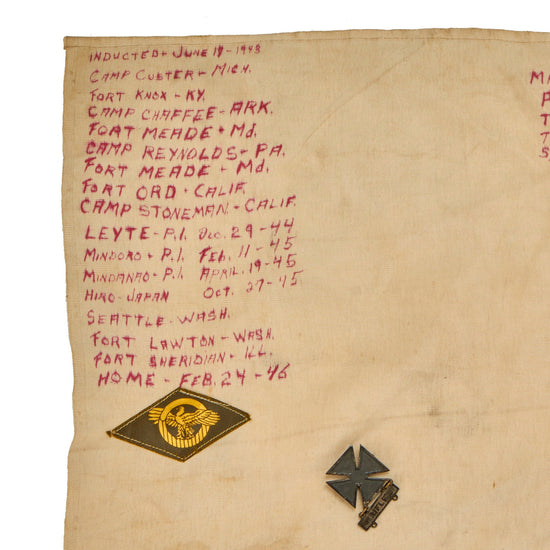 INDUCTED - JUNE 19-1943
CAMP CUSTER - MICH.
FORT KNOX - KY.
CAMP CHAFFEE - ARK.
FORT MEADE - Md.
CAMP REYNOLDS - PA.
FORT MEADE - Md.
FORT ORD - CALIF.
CAMP STONEMAN - CALIF.
LEYTE - P.I. DEC. 29-44
MINDORO - P.I. FEB. 11-45
MINDANAO - P.I. APRIL. 19-45
HIRO - JAPAN OCT. 27-45
SEATTLE - WASH.
FORT LAWTON - WASH.
FORT SHERIDIAN - ILL.
HOME - FEB. 24-46
RIFLE